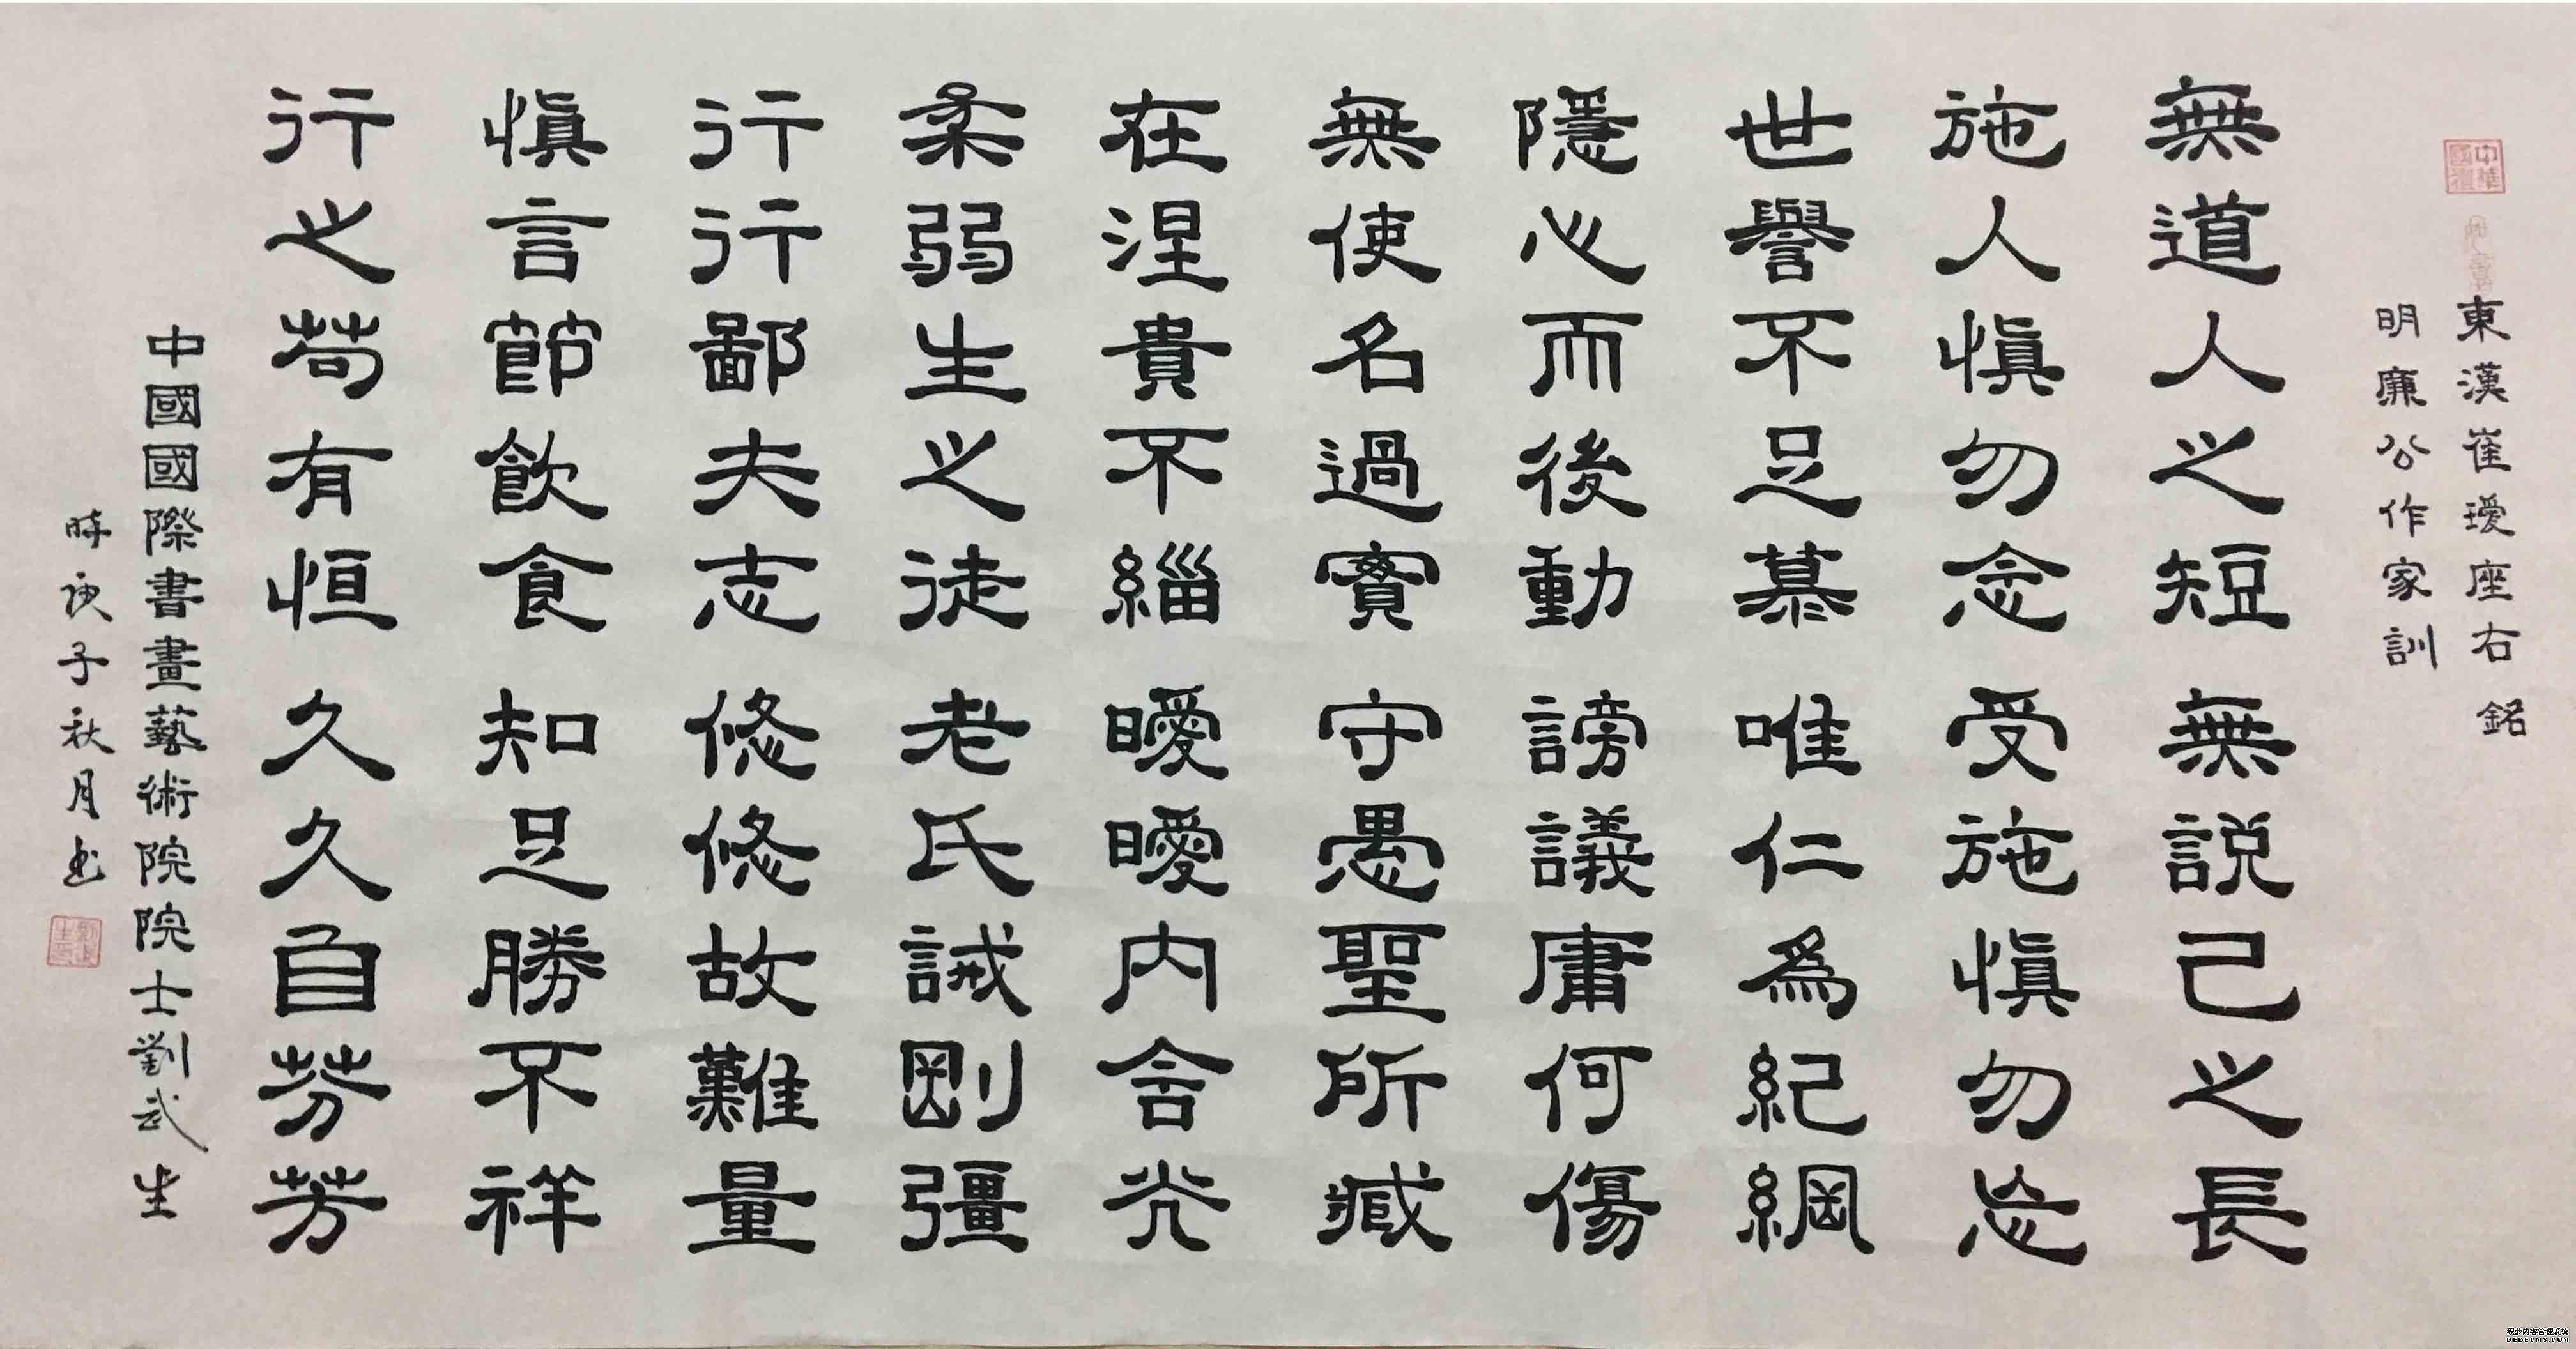 東漢崔瑗座右銘
明廉公作家訓
無道人之短無説己之長
施人慎勿念受施慎勿忘
世譽不足慕唯仁爲紀綱
隱心而後動謗議庸何傷
無使名過實守愚聖所臧
在涅貴不緇曖曖内含光
柔弱生之徒老氏誡剛彊
行行鄙夫志悠悠故難量
慎言節飲食知足勝不祥
行之苟有恒久久自芬芳
中國國際書畫藝術院院士劉武生
時庚子秋月书
织梦内容管理系统
DEDECMS.COM